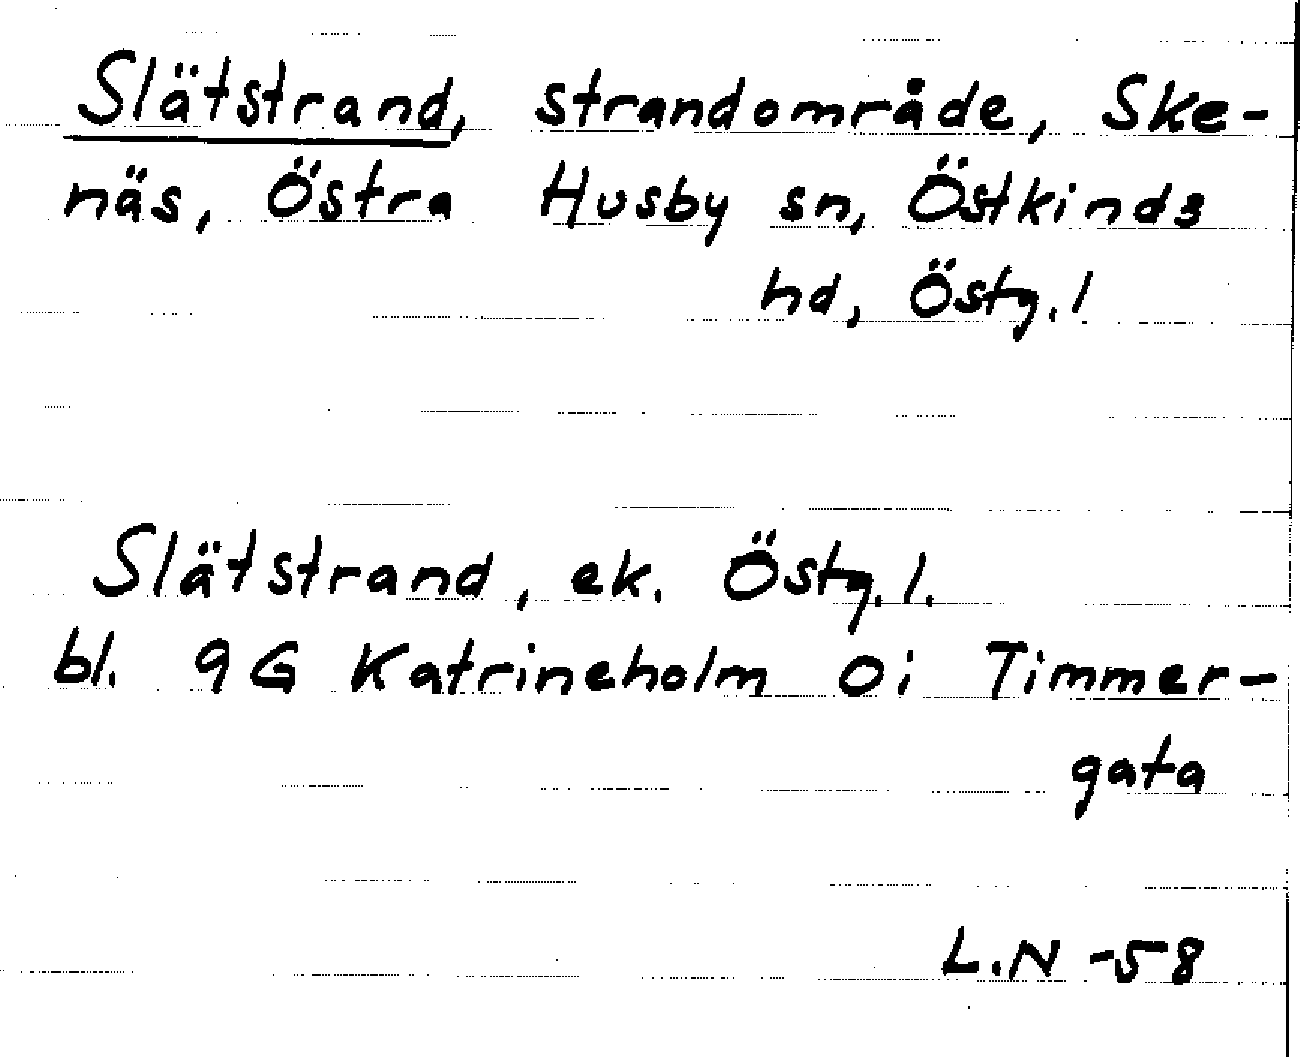 Slätstrand, strandområde, Ske-
näs, Östra Husby sn, Östkinds
hd, Östg. l
Slätstrand, ek. Östg. l.
bl. 9G Katrineholm Oi Timmer-
gata
L.N -58